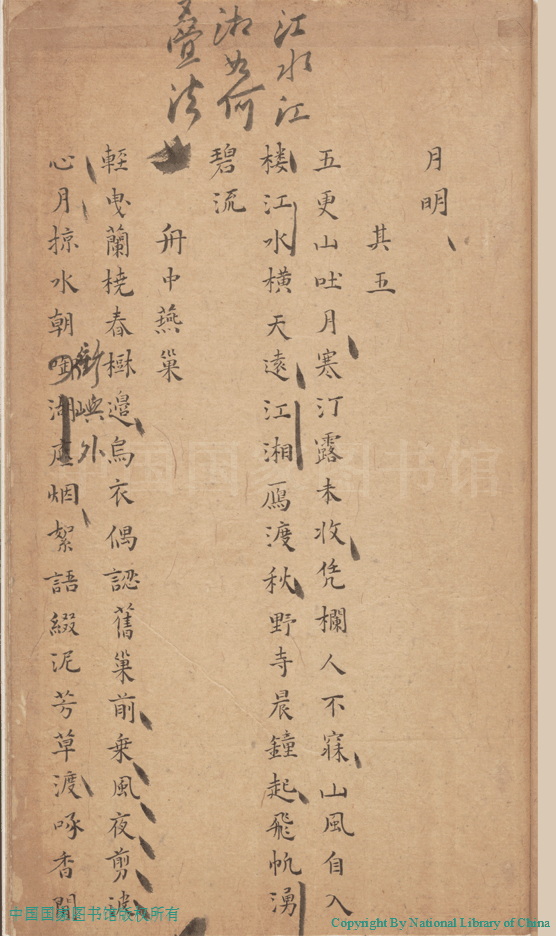 江水江
湘如何
叠法
月明
其五
五更山吐月寒汀露未收凭欄人不寐山風自入
楼江水橫天遠江湘鴈渡秋野寺晨鐘起飛帆湧
碧流
舟中燕巢
輕曳蘭橈春樹邉烏衣偶認舊巢前乗風夜剪波
嶼外
心月掠水朝啣湖烟絮語綴泥芳草渡啄香
中国国家图书馆
中国国家图书馆版权所有
Copyright By National Library of China